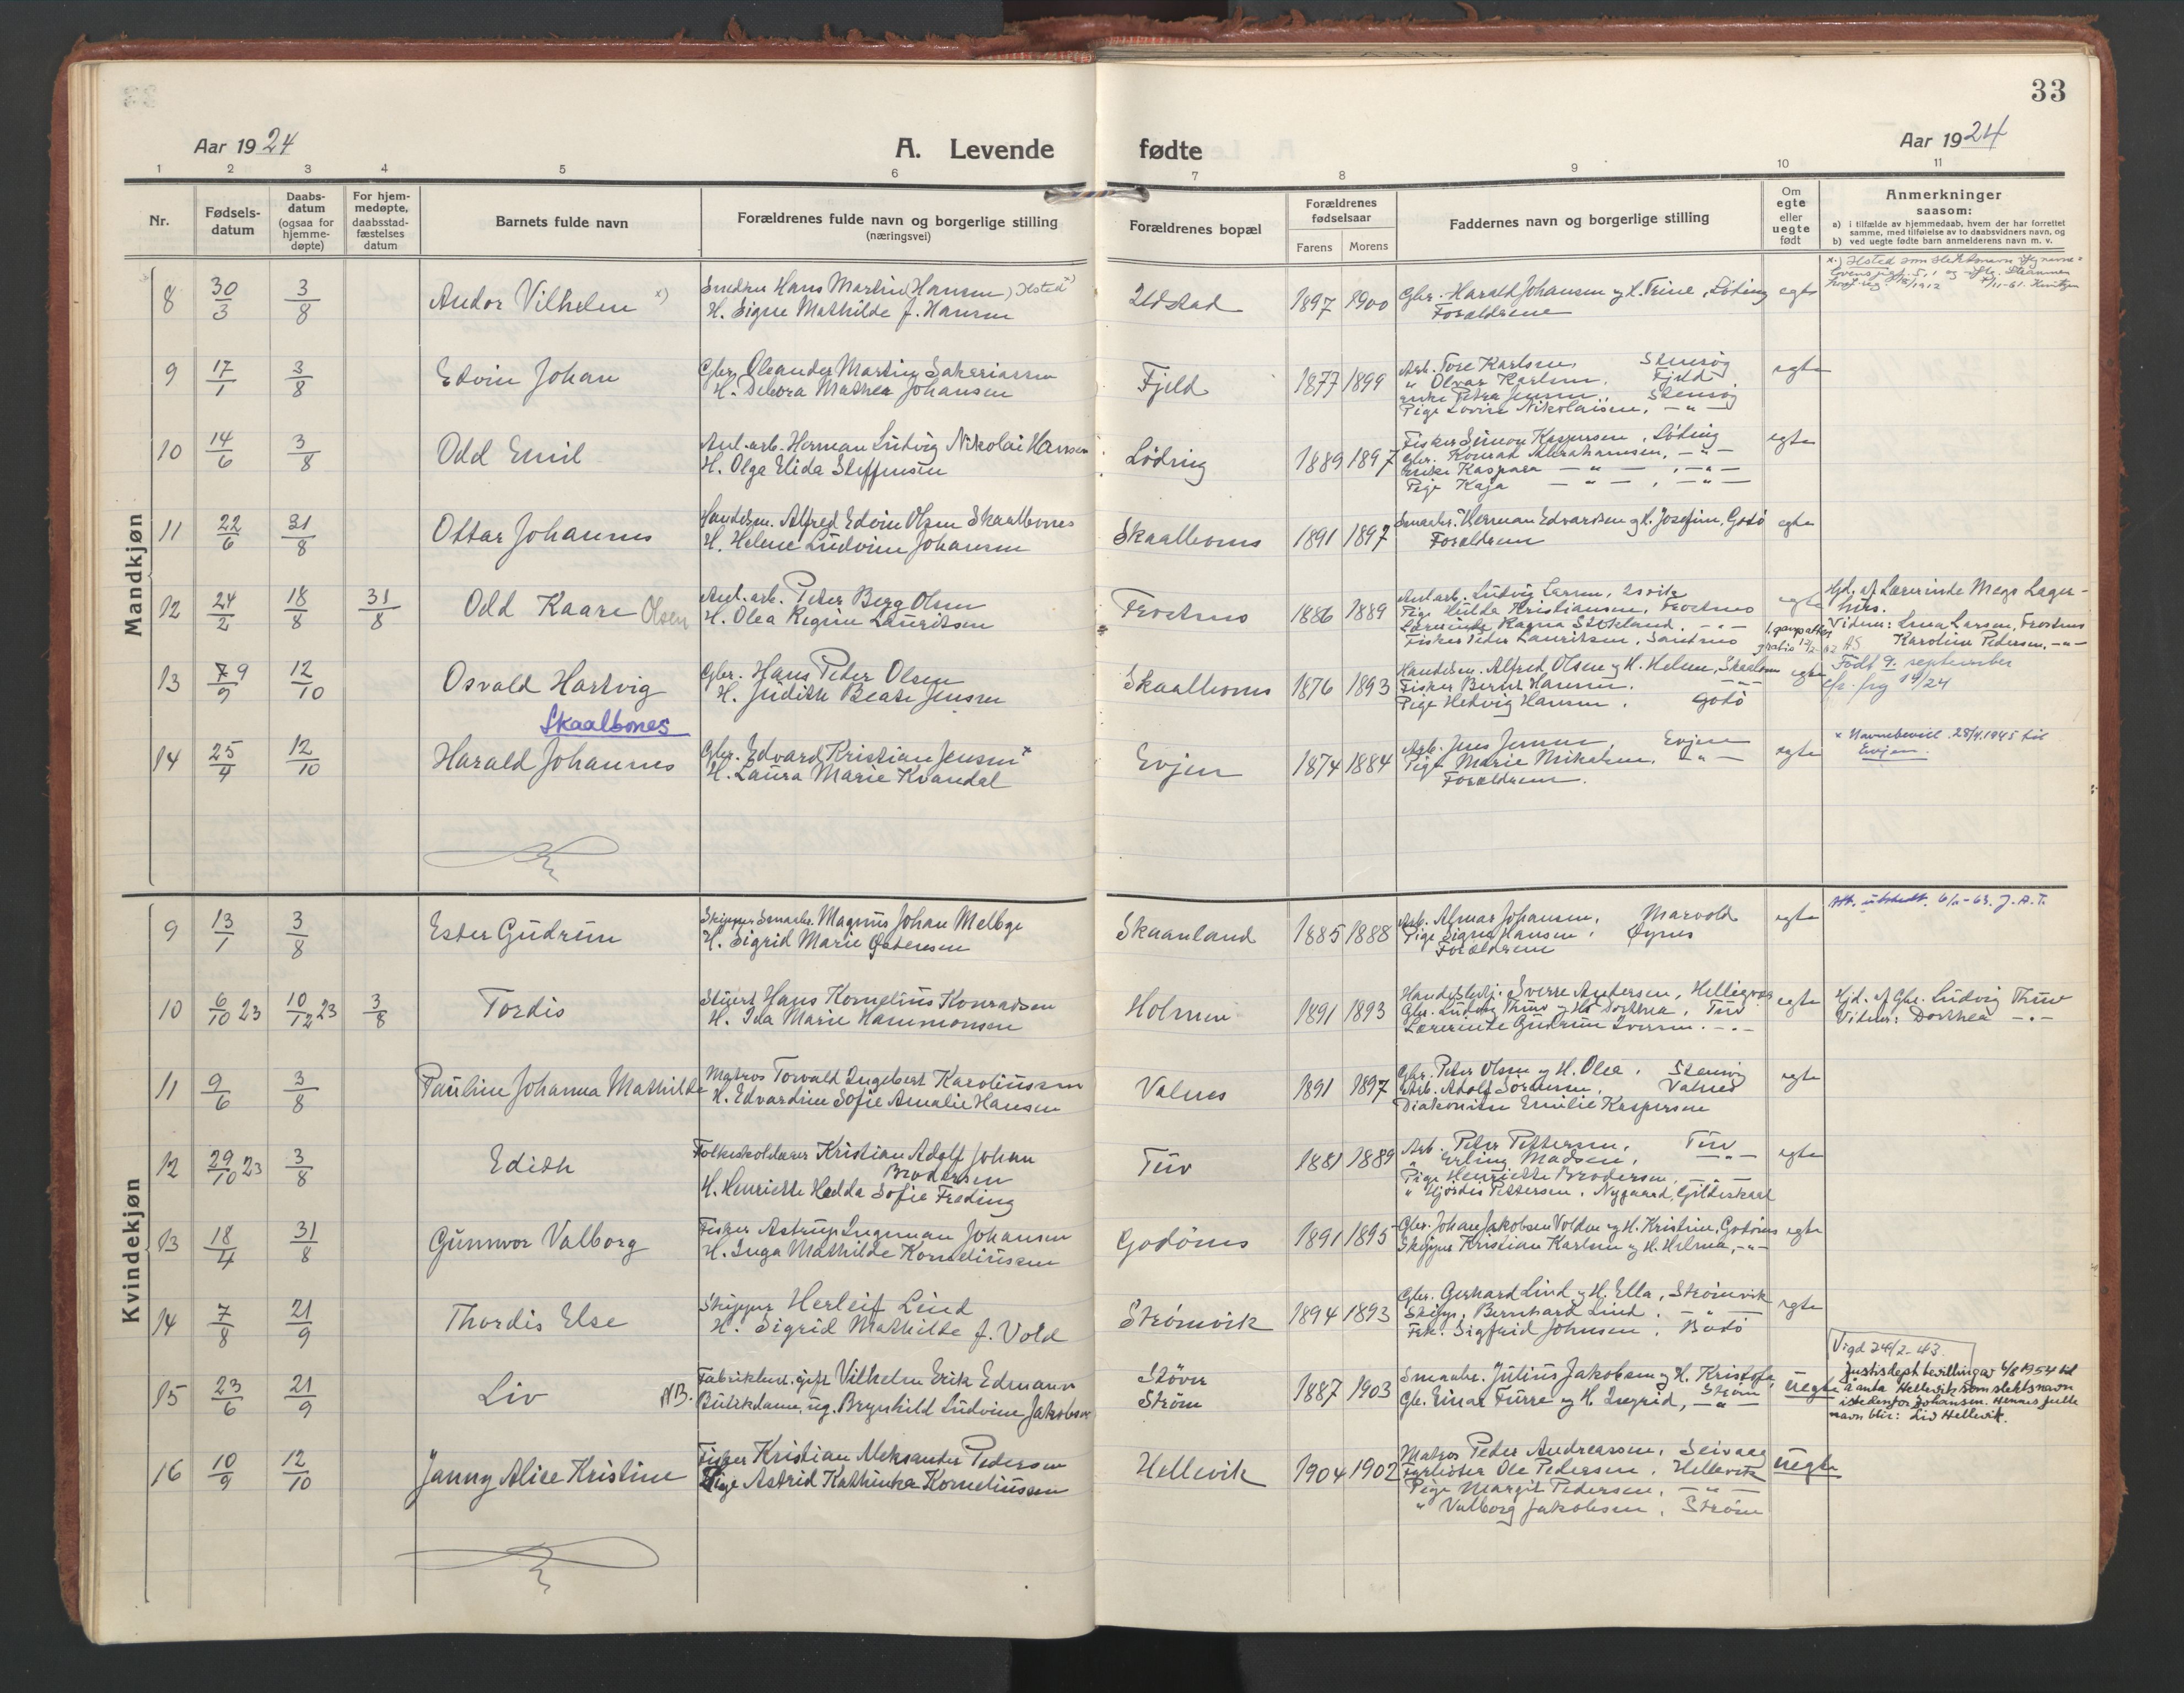 33
Aar 1924
A. Levende fødte
Aar 1924
1 2 3 4 5 6 7 8 9 10 11
Nr.
Fødsels-
datum
Daabs-
datum
(ogsaa for
hjemme-
døpte)
For hjem-
medøpte,
daabsstad-
fæstelses
datum
Barnets fulde navn
Forældrenes fulde navn og borgerlige stilling
(næringsvei)
Forældrenes bopæl
Forældrenes
fødselsaar
Farens Morens
Faddernes navn og borgerlige stilling
Om
egte
eller
uegte
født
Anmerkninger
saasom:
a) i tilfælde av hjemmedaab, hvem der har forrettet
samme, med tilføielse av to daabsvidners navn, og
b) ved uegte fødte barn anmelderens navn m. v.
Mandkjøn
8 30/3 3/8 Andor Vilhelm x)
Smeden Hans Martin (Hansen) Ilsted x)
H. Signe Mathilde f. Hansen
Ilstad 1897 1900
Gbr. Harald Johansen og H. Trine, Löding
Forældrene
egte
x) Ilsted som slektsnavn
9 17/1 3/8 Edvin Johan
Gbr. Oleander Martin Sakariassen
H. Debora Mathea Johansen
Fjeld 1877 1899
Arb. Tore Karlsen, Stensøg
" Olvar Karlsen, Fjeld
enke Petra Jensen, Stensøg
Pige Lovise Nikolaisen, -"-
egte
10 14/6 3/8 Odd Emil
Anl.arb. Herman Ludvig Nikolai Hansen
H. Olga Elida Steffensen
Löding 1889 1897
Fisker Simon Kaspersen, Löding
Gbr. Konrad Abrahamsen, -"-
Enke Kaspara -"-, -"-
Pige Kaja -"-, -"-
egte
11 22/6 31/8 Ottar Johannes
Handelsm. Alfred Edvin Olsen Skaalbones
H. Helene Ludvine Johansen
Skaalbones 1891 1897
Smaabr. Herman Edvardsen og H. Josefine, Godö
Forældrene
egte
12 24/2 18/8 31/8 Odd Kaare Olsen
Anl.arb. Peter Berg Olsen
H. Olea Regine Lauritsen
Froctnes 1886 1889
Anl.arb. Ludvig Larsen,
Pige Hulda Kristiansen, Froctnes
Lærerinde Ragna Stokland. -"-
Fisker Peder Lauritsen, Sandnes
egte
Hjd. af Lærerinde Mags Lager-
hus.
Vidner: Lena Larsen, Froctnes
Karoline Pedersen, -"-
13 7/9 9 12/10 Osvald Hartvig
Skaalbones
Gbr. Hans Peter Olsen
H. Judith Beate Jensen
Skaalbones 1876 1893
Handelsm. Alfred Olsen og H. Helene, Skaalbones
Fisker Bernt Hansen, -"-
Pige Hedvig Hansen, Godö
egte
Födt 9. september
14 25/4 12/10 Harald Johannes
Gbr. Edvard Kristian Jensen x
H. Laura Marie Kvandal
Evjen 1874 1884
Arb. Jens Jensen, Evjen
Pige Marie Mikalsen, -"-
Forældrene.
egte
x Navnebevill. 28/4.1945 til
Evjen.
Kvindekjøn
9 13/1 3/8 Ester Gudrun
Skipper Smaabr. Magnus Johan Melbye
H. Sigrid Marie Pedersen
Skaanland 1885 1888
Arb. Almar Johansen, Marvold
Pige Signe Hansen, Øynes
Forældrene
egte
Att. utstedt. 6/11-63. J.A.T.
10 6/10 23 10/12 23 3/8 Tordis
Stuert Hans Kornelius Konradsen
H. Ida Marie Hammonsen
Holmen 1891 1893
Handelsbetj. Sverre Andersen, Helligvær
Gbr. Ludvig Tuv og H. Dorthea, Tuv
Lærerinde Gudrun Iversen. -"-
egte
Hjd. af Gbr. Ludvig Tuv
Vidner: Dorthea -"-
11 9/6 3/8 Pauline Johanna Mathilde
Matros Torvald Ingebert Karoliussen
H. Edvardine Sofie Amalie Hansen
Valnes 1891 1897
Gbr. Peter Olsen og H. Olea, Stensøg
Arb. Adolf Sörensen, Valnes
Diakonisse Emilie Kaspersen
egte
12 29/10 23 3/8 Edith
Folkeskolelærer Kristian Adolf Johan
Brodersen
H. Henriette Hedda Sofie Freding
Tuv 1881 1889
Arb. Peter Pettersen, Tuv
" Erling Madsen, -"-
Pige Henriette Brodersen, -"-
" Hjördis Pettersen, Nygaard, Gildeskaal
egte
13 18/4 31/8 Gunnvor Valborg
Fisker Astrup Ingeman Johansen
H. Inga Mathilde Korneliussen
Godönes 1891 1895
Gbr. Johan Jakobsen Volden og H. Kristine, Godönes
Skipper Kristian Karlsen og H. Helma, -"-
egte
14 7/8 21/9 Thordis Else
Skipper Herleif Lind
H. Sigrid Mathilde f. Vold
Strömvik 1894 1893
Gbr. Gerhard Lind og H. Ella, Strömvik
Skipp. Bernhard Lind. -"-
Frk. Sigfrid Johnsen, Bodö
egte
15 23/6 21/9 Liv NB.
Fabrikbest. gift Vilhelm Erik Edmann
Butikdame, ug. Brynhild Ludvine Jakobsen
Støver
Ström 1887 1903
Smaabr. Julius Jakobsen og H. Kristofa,
Gb. Einar Furre og H. Ingrid, Ström -"-
uegte
Vigd 24/2-43.
Justisdept bevillinga 4/8 1954 til
å anta Hellevik som slektsnavn
istedenfor Johansen. Hennes fulle
navn blir: Liv Hellevik.
16 10/9 12/10 Janny Alice Kristine
Fisker Kristian Aleksander Pedersen
Pige Astrid Kathinka Korneliussen
Hellevik 1904 1902
Matros Peder Andreassen, Seivaag
Fyrböter Ole Pedersen, Hellevik
Pige Margit Pedersen, -"-
" Valborg Jakobsen, Ström
uegte